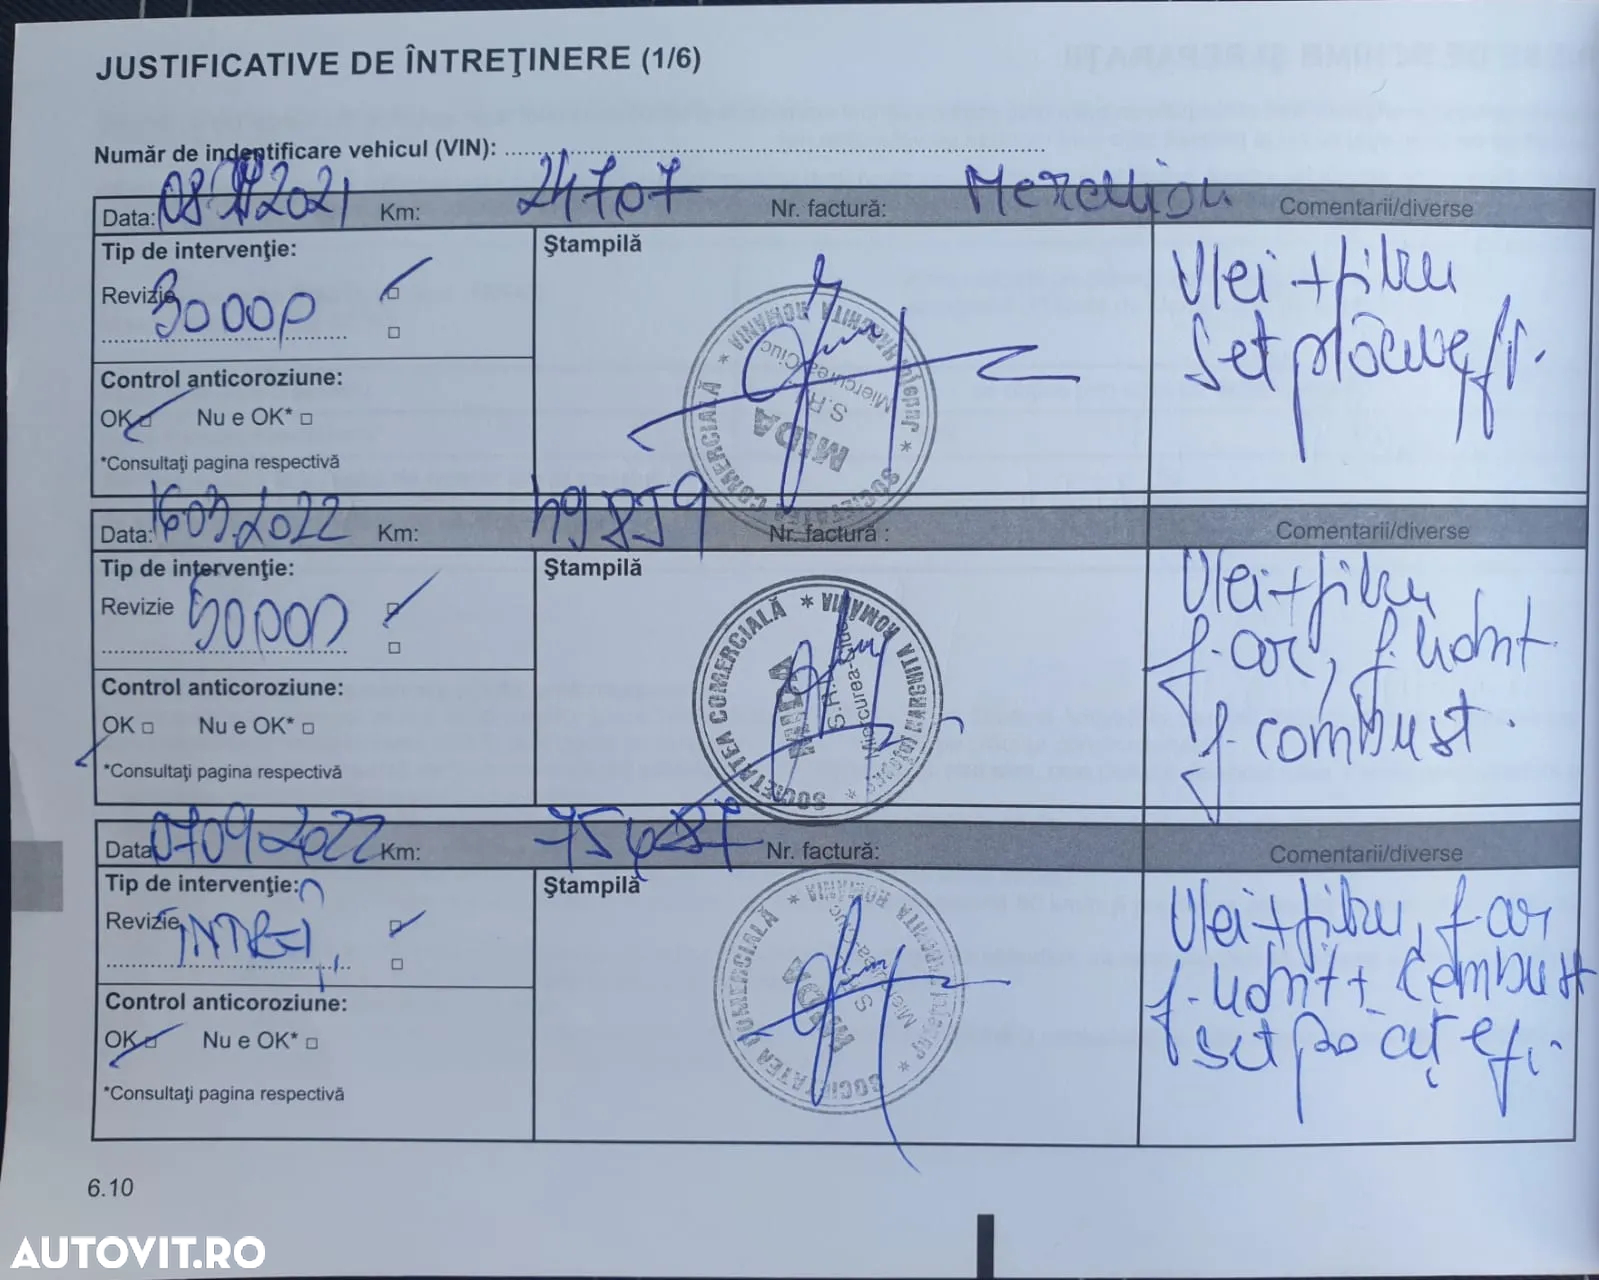 JUSTIFICATIVE DE ÎNTREŢINERE (1/6)
Număr de indentificare vehicul (VIN): ........................
Data: 2021 Km: 24707 Nr. factură: Comentarii/diverse
Tip de intervenţie:
Revizie 30000
Ştampilă
Ulei + filtru
Set plăcuțe f.
Control anticoroziune:
OK Nu e OK*
*Consultaţi pagina respectivă
SOCIETATEA COMERCIALĂ * MIDA S.R.L. Miercurea-Ciuc * Judeţul HARGHITA ROMANIA
Data: 16.03.2022 Km: 49859 Nr. factură : Comentarii/diverse
Tip de intervenţie:
Revizie 50000
Ştampilă
Ulei + filtru
f. aer, f.
f. combust.
Control anticoroziune:
OK Nu e OK*
*Consultaţi pagina respectivă
SOCIETATEA COMERCIALĂ * MIDA S.R.L. Miercurea-Ciuc * Judeţul HARGHITA ROMANIA
Data: 07.09.2022 Km: Nr. factură: Comentarii/diverse
Tip de intervenţie:
Revizie
Ştampilă
Ulei + filtru, f. aer
combust
set
Control anticoroziune:
OK Nu e OK*
*Consultaţi pagina respectivă
SOCIETATEA COMERCIALĂ * MIDA S.R.L. Miercurea-Ciuc * Judeţul HARGHITA ROMANIA
6.10
AUTOVIT.RO